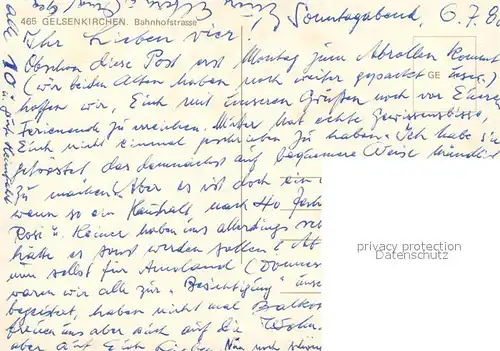 465 GELSENKIRCHEN. Bahnhofstrasse
Sonntagabend, 6.7.8
Ihr Lieben vier!
Obschon diese Post erst Montag zum Abrollen kommt
(wir beiden Alten haben noch weiter gepackt usw.)
hoffen wir, Euch mit unseren Grüßen noch vor Eurem
Ferienende zu erreichen. Mutter hat echte Gewissensbisse,
Euch nicht einmal geschrieben zu haben. Ich habe sie
getröstet, das demnächst auf bequemere Weise mündlich
zu machen. Aber es ist doch ein
wenn so ein Haushalt nach 40 Jahr
Rosi u. Heiner haben uns allerdings
hätte es sonst werden sollen! Ab
nun selbst für Amoland (Donners
waren wir alle zur "Besichtigung" unse
begeistert, haben nicht mal Balkon
freuen uns aber auch auf die Wohn
aber auf Euch Lieben. Nun noch
alle 10 u. gute Heimfahrt
GE
privacy protection
DAMALS.DE